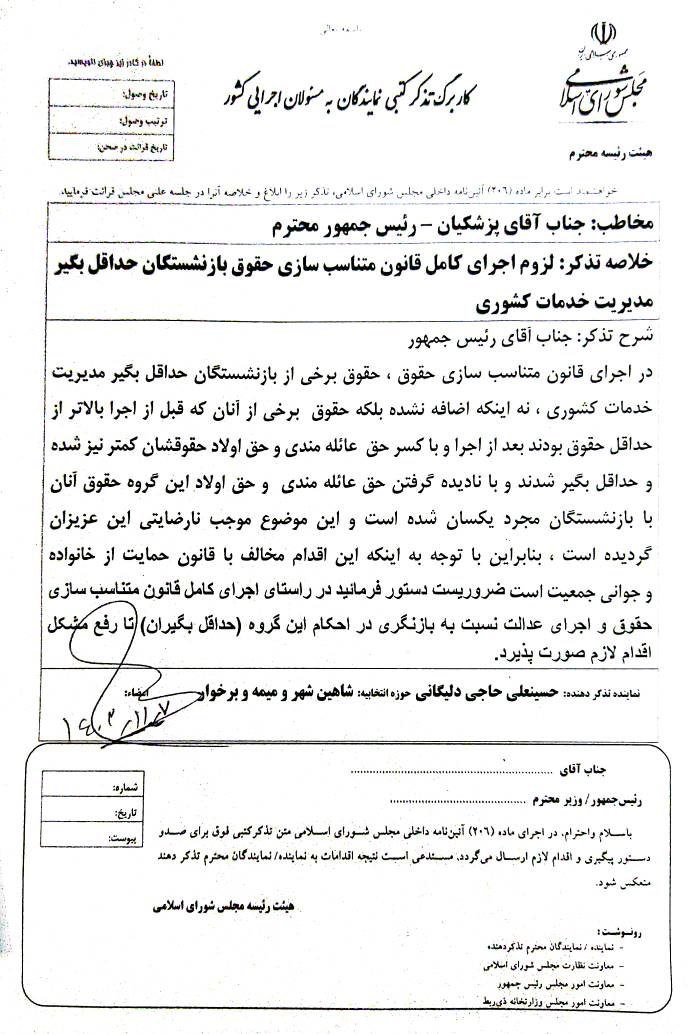 بسمه تعالی
جمهوری اسلامی ایران
مجلس شورای اسلامی
کاربرگ تذکر کتبی نمایندگان به مسئولان اجرایی کشور
لطفاً در کادر زیر چیزی ننویسید.
تاریخ وصول:
ترتیب وصول:
تاریخ قرائت در صحن:
هیئت رئیسه محترم
خواهشمند است برابر ماده (۲۰۶) آئین‌نامه داخلی مجلس شورای اسلامی، تذکر زیر را ابلاغ و خلاصه آنرا در جلسه علنی مجلس قرائت فرمایید.
مخاطب: جناب آقای پزشکیان – رئیس جمهور محترم
خلاصه تذکر: لزوم اجرای کامل قانون متناسب سازی حقوق بازنشستگان حداقل بگیر
مدیریت خدمات کشوری
شرح تذکر: جناب آقای رئیس جمهور
در اجرای قانون متناسب سازی حقوق ، حقوق برخی از بازنشستگان حداقل بگیر مدیریت
خدمات کشوری ، نه اینکه اضافه نشده بلکه حقوق برخی از آنان که قبل از اجرا بالاتر از
حداقل حقوق بودند بعد از اجرا و با کسر حق عائله مندی و حق اولاد حقوقشان کمتر نیز شده
و حداقل بگیر شدند و با نادیده گرفتن حق عائله مندی و حق اولاد این گروه حقوق آنان
با بازنشستگان مجرد یکسان شده است و این موضوع موجب نارضایتی این عزیزان
گردیده است ، بنابراین با توجه به اینکه این اقدام مخالف با قانون حمایت از خانواده
و جوانی جمعیت است ضروریست دستور فرمائید در راستای اجرای کامل قانون متناسب سازی
حقوق و اجرای عدالت نسبت به بازنگری در احکام این گروه (حداقل بگیران) تا رفع مشکل
اقدام لازم صورت پذیرد.
نماینده تذکر دهنده: حسینعلی حاجی دلیگانی حوزه انتخابیه: شاهین شهر و میمه و برخوار امضاء:
۱۴۰۳/۱۱/۷
جناب آقای ........................................
رئیس‌جمهور/ وزیر محترم ........................................
شماره:
تاریخ:
پیوست:
باسلام واحترام، در اجرای ماده (۲۰۶) آئین‌نامه داخلی مجلس شورای اسلامی متن تذکرکتبی فوق برای صدو
دستور پیگیری و اقدام لازم ارسال می‌گردد، مستدعی است نتیجه اقدامات به نماینده/ نمایندگان محترم تذکر دهند
منعکس شود.
هیئت رئیسه مجلس شورای اسلامی
رونوشت:
- نماینده / نمایندگان محترم تذکردهنده
- معاونت نظارت مجلس شورای اسلامی
- معاونت امور مجلس رئیس جمهور
- معاونت امور مجلس وزارتخانه ذی‌ربط